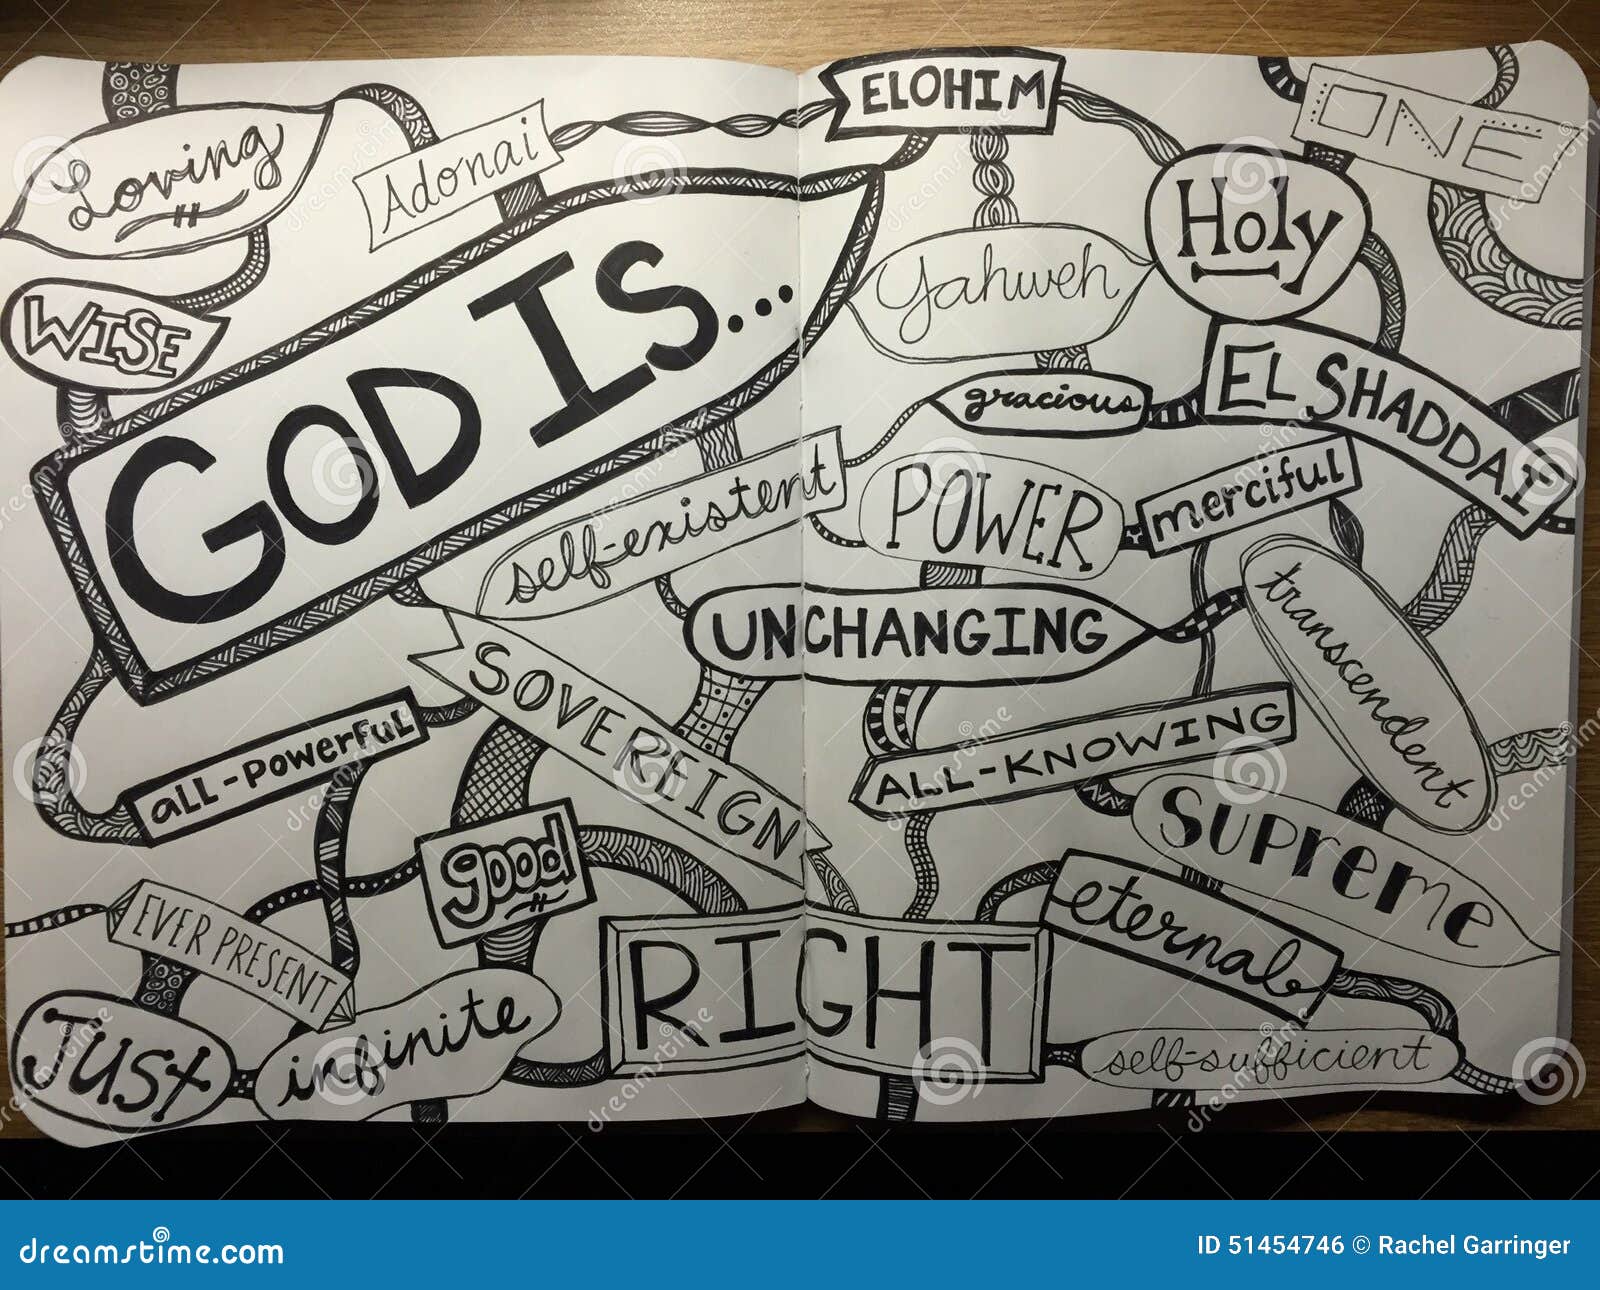 ELOHIM
ONE
Loving
Adonai
Holy
Yahweh
WISE
GOD IS...
gracious
EL SHADDAI
self-existent
POWER
merciful
UNCHANGING
transcendent
SOVEREIGN
all-powerful
ALL-KNOWING
Supreme
good
EVER PRESENT
RIGHT
eternal
Just
infinite
self-sufficient
dreamstime.com
ID 51454746 © Rachel Garringer